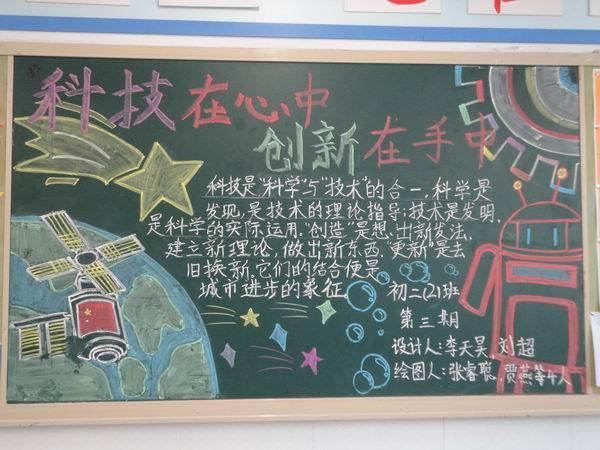 科技在心中
创新在手中
科技是"科学"与"技术"的合一，科学是
发现，是技术的理论指导；技术是发明，
是科学的实际运用。"创造"是想出新发法，
建立新理论，做出新东西。"更新"是去
旧换新。它们的结合便是
城市进步的象征。
初二(2)班
第三期
设计人：李天昊，刘超
绘图人：张睿聪，贾燕等4人